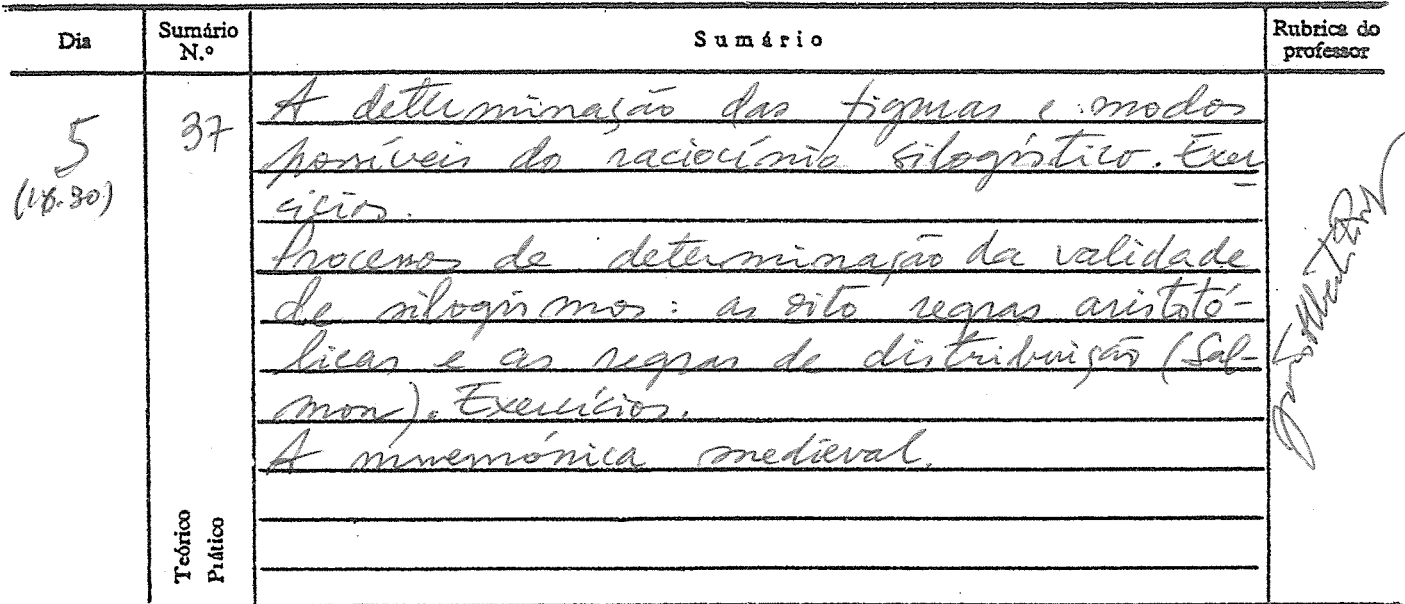 Dia
Sumário N.º
Sumário
Rubrica do professor
5
37
A determinação das figuras e modos
possíveis do raciocínio silogístico. Exer
cícios.
Processos de determinação da validade
de silogismos: as oito regras aristoté-
licas e as regras de distribuição (Sal-
mon). Exercícios.
A mnemónica medieval.
Teórico
Prático